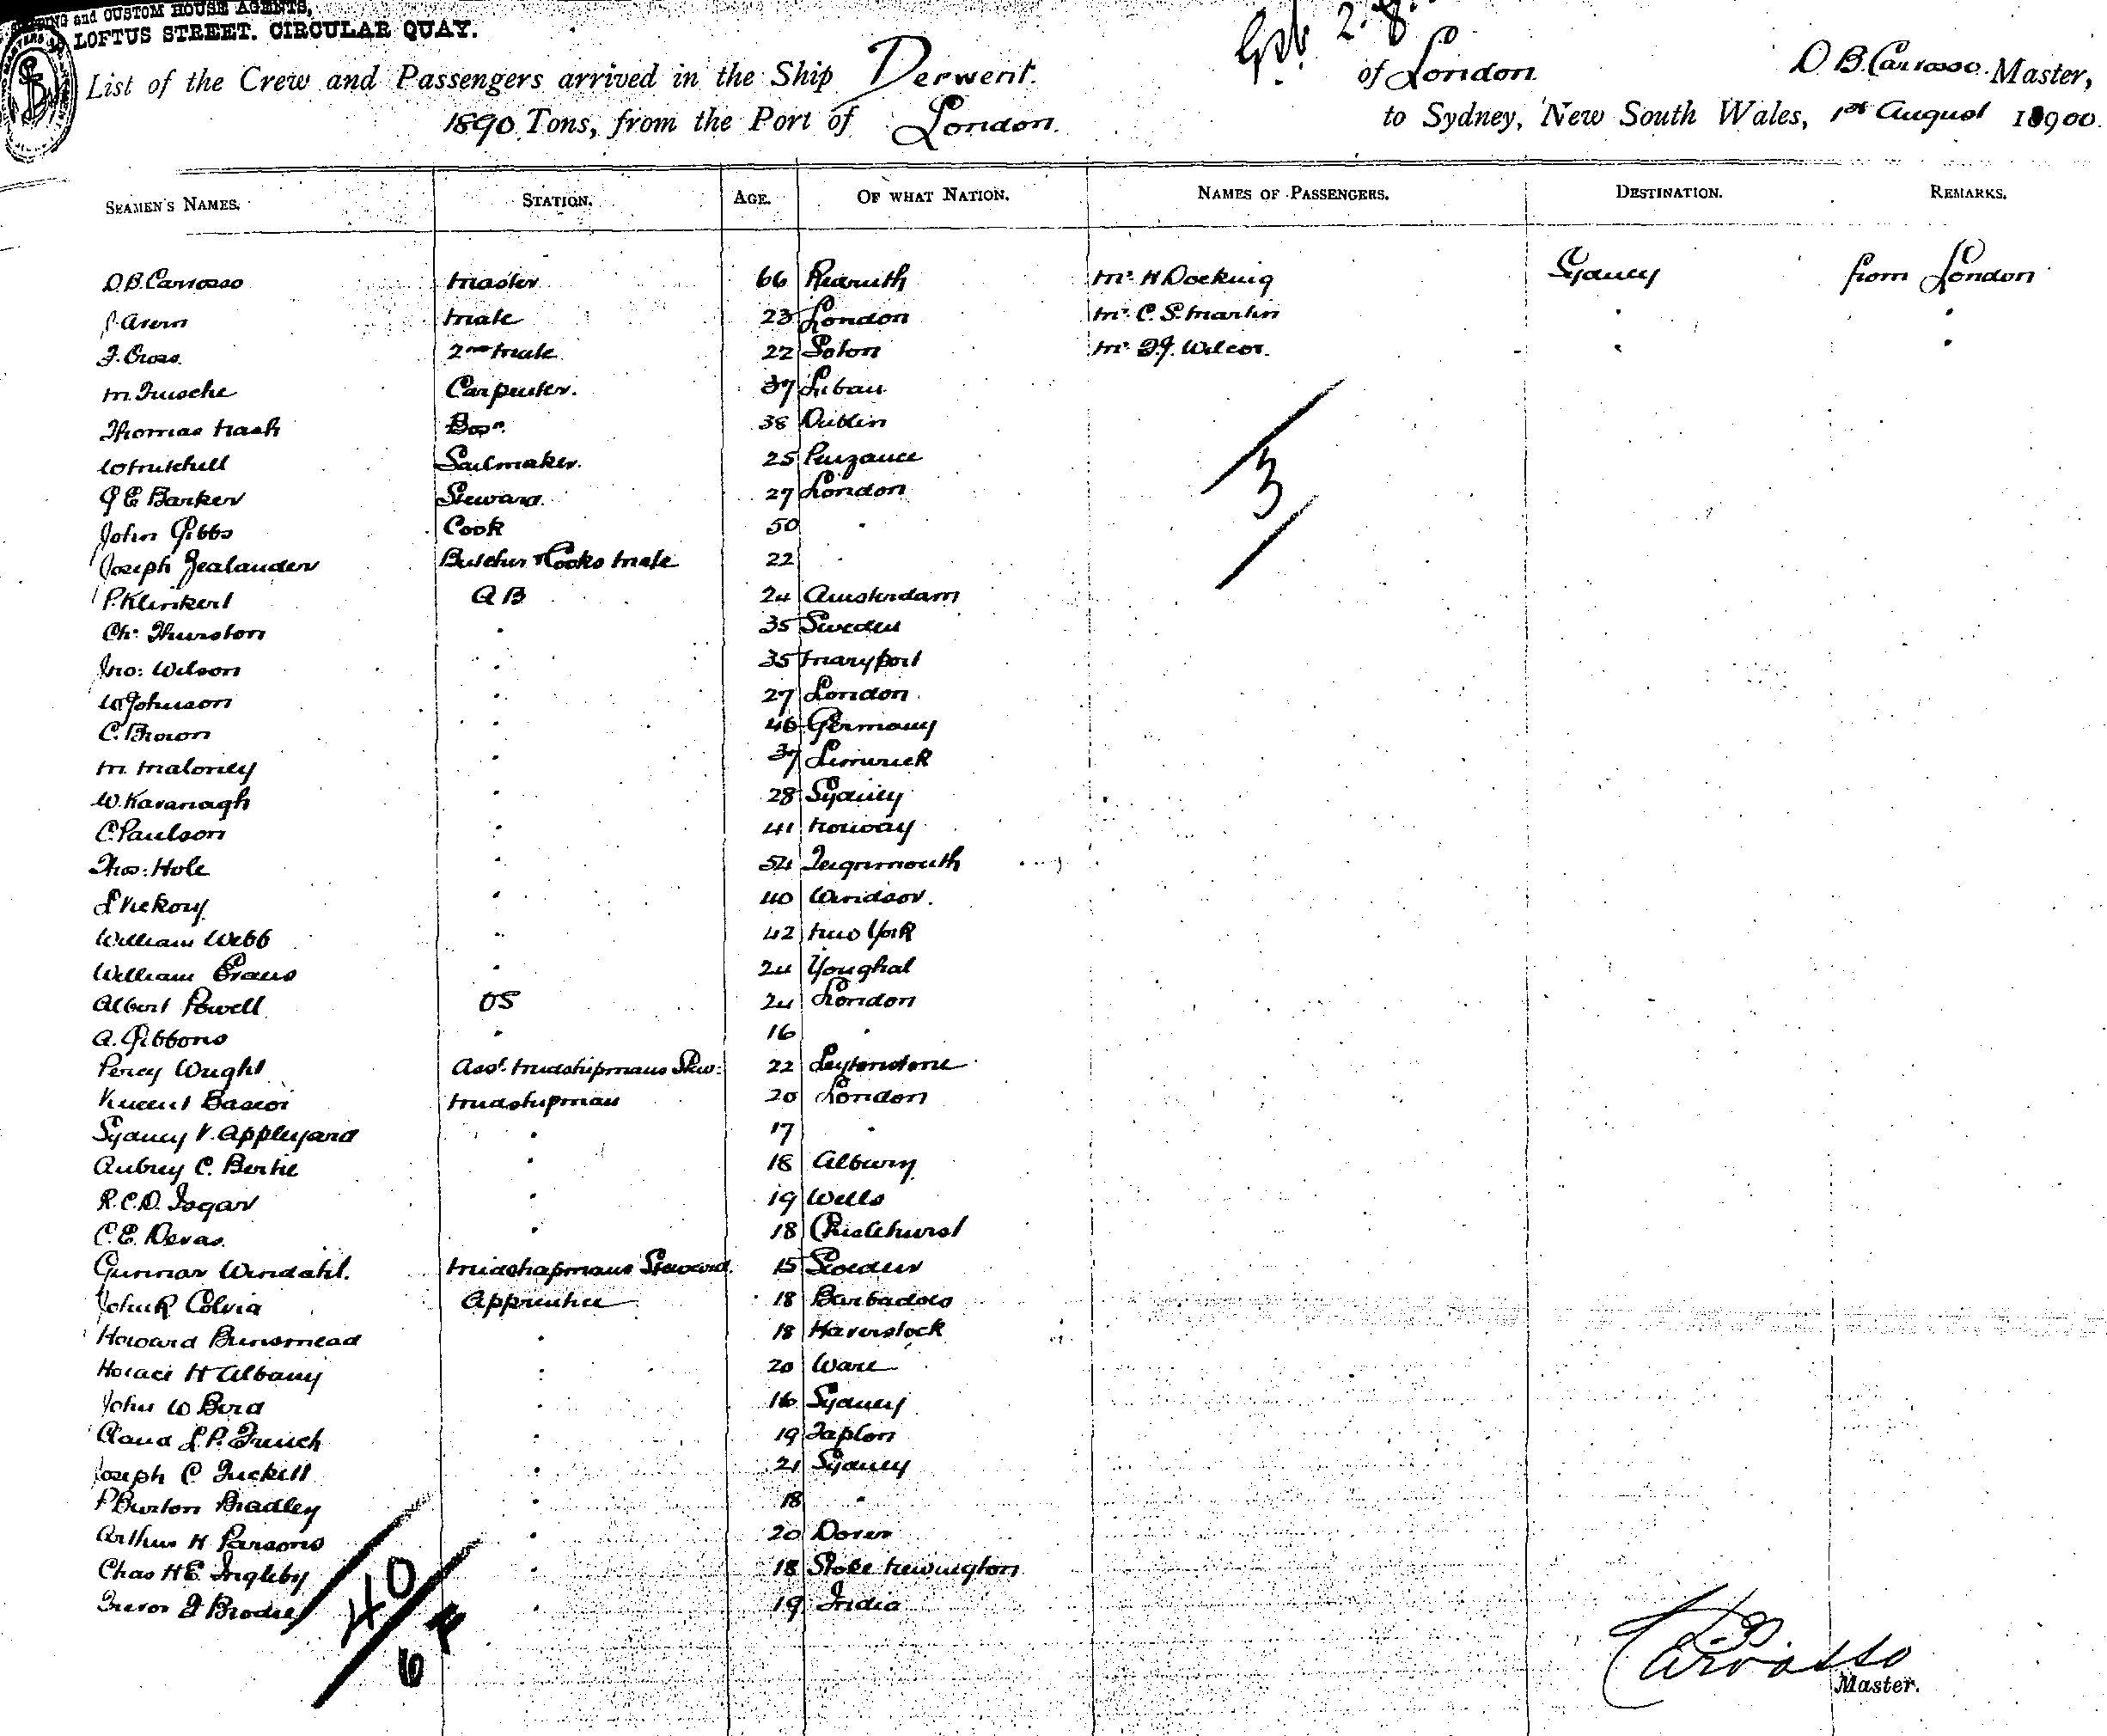 and CUSTOM HOUSE AGENTS,
LOFTUS STREET. CIRCULAR QUAY.
List of the Crew and Passengers arrived in the Ship Derwent. of London. D. B. Carvosso. Master,
1890 Tons, from the Port of London. to Sydney, New South Wales, 1st August 18900.
SEAMEN'S NAMES. STATION. AGE. OF WHAT NATION. NAMES OF PASSENGERS. DESTINATION. REMARKS.
D.B. Carvosso Master 66 Redruth Mr. H Docking Sydney from London
Mate 23 London Mr. C. S. Martin " "
F. Cross. 2nd Mate 22 Soton Mr. F.J. Wilcox. " "
Carpenter. 37 Libau
Thomas Nash Bosn. 38 Dublin
W Mitchell Sailmaker. 25 Penzance
J E Barker Steward 27 London
John Gibbs Cook 50 "
Joseph Zealander Butcher & Cooks Mate 22 "
P. Klinkert A B 24 Amsterdam
Ch: Thurston " 35 Sweden
Jno: Wilson " 35 Maryport
W Johnson " 27 London
C. Brown " 46 Germany
M. Maloney " 37 Limerick
W. Kavanagh " 28 Sydney
C. Paulson " 41 Norway
Thos: Hole " 54 Teignmouth
L Vickory " 40 Windsor.
William Webb " 42 New York
William Evans " 24 Youghal
Albert Powell OS 24 London
A. Gibbons " 16 "
Percy Wright Asst. Midshipmans Stew: 22 Leytonstone
Vincent Midshipman 20 London
Sydney V. Appleyard " 17 "
Aubrey C. Bertie " 18 Albury
R.C.D. Isgar " 19 Wells
C.E. Devas. " 18 Chislehurst
Gunnar Windahl. Midshapmans Steward. 15 Sweden
John R Colvin Apprentice 18 Barbados
Howard Brinsmead " 18 Haverstock
Horace H Albany " 20 Ware
John W Bird " 16 Sydney
Claud L.P. French " 19 Taplon
Joseph C Tuckett " 21 Sydney
P Burton Bradley " 18 "
Arthur H Parsons " 20 Dover
Chas H E. Ingleby " 18 Stoke Newington
Trevor F Brodie " 19 India
3
40
Carvosso
Master.